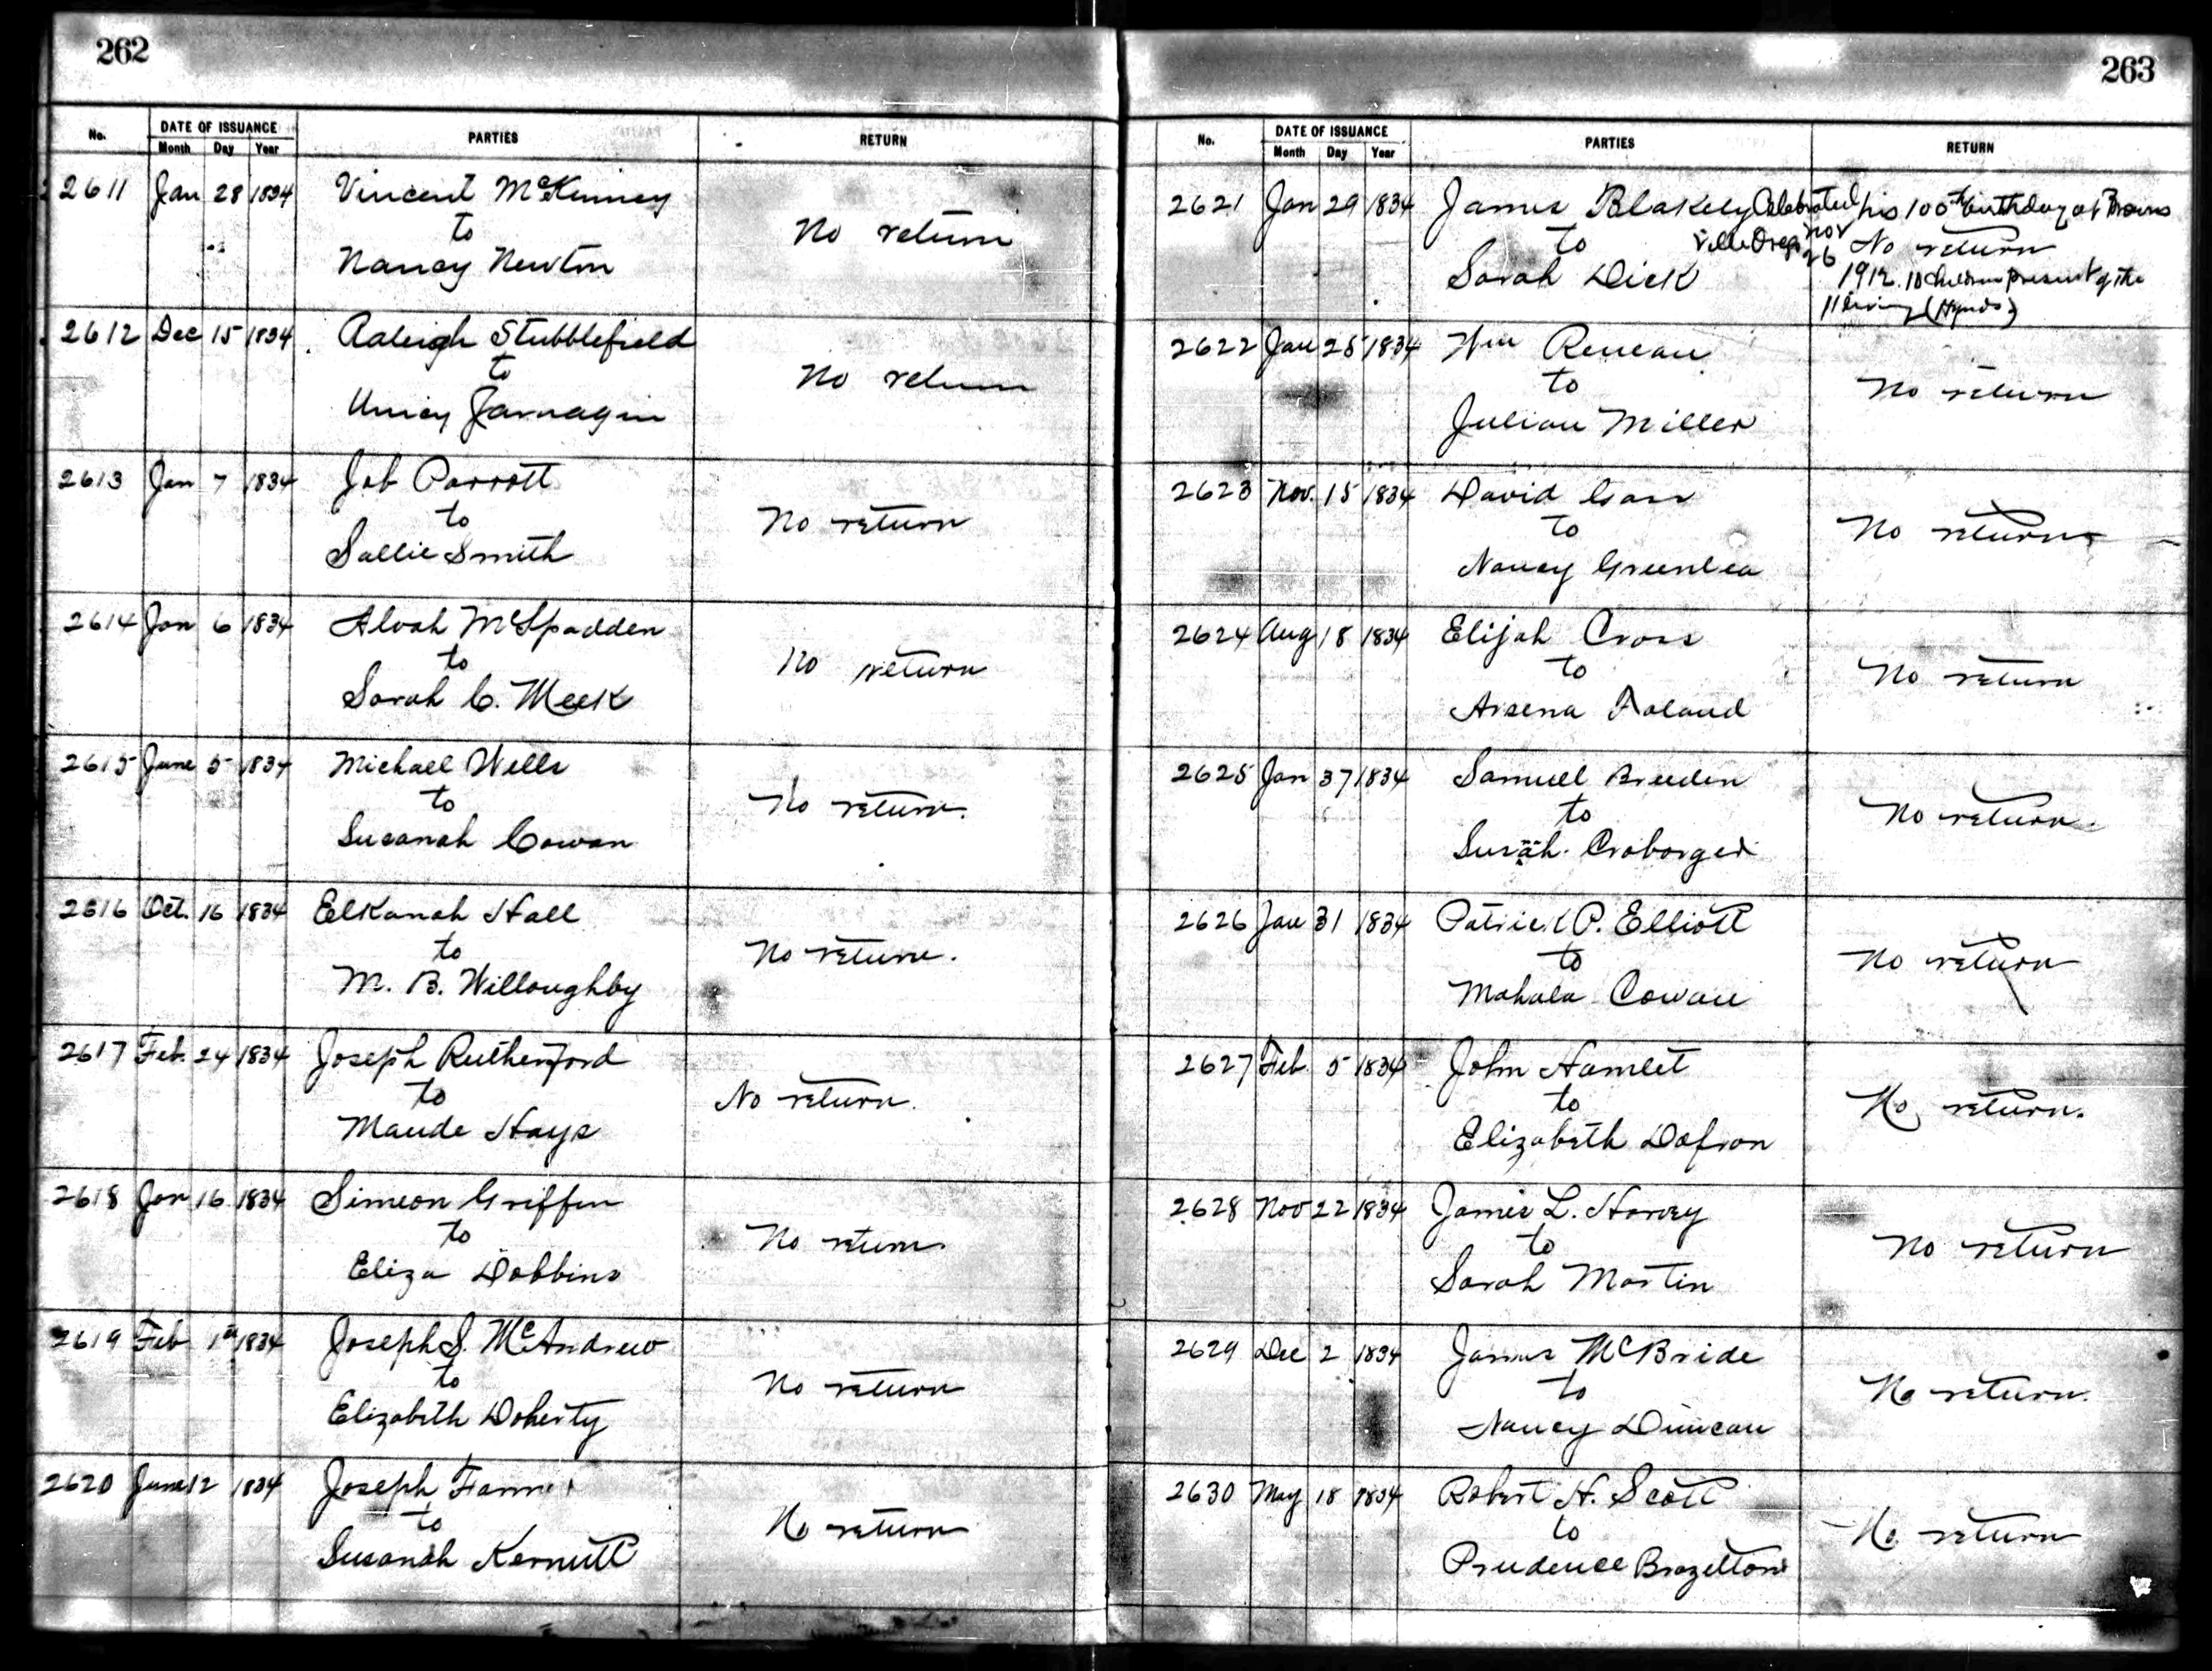 262
No. DATE OF ISSUANCE PARTIES RETURN
Month Day Year
2611 Jan 28 1834 Vincent McKinney
to
No return
Nancy Newton
2612 Dec 15 1834 Raleigh Stubblefield
to
No return
Unicy Jarnagin
2613 Jan 7 1834 Job Parrott
to
No return
Sallie Smith
2614 Jan 6 1834 Alvah McSpadden
to
No return
Sarah C. Meek
2615 June 5 1834 Michael Wells
to
No return.
Susanah Cowan
2616 Oct. 16 1834 Elkanah Hall
to
No return.
M. B. Willoughby
2617 Feb. 24 1834 Joseph Rutherford
to
No return.
Maude Hays
2618 Jan 16 1834 Simeon Griffin
to
No return.
Eliza Dobbins
2619 Feb 1st 1834 Joseph S. McAndrew
to
No return
Elizabeth Doherty
2620 June 12 1834 Joseph Farmer
to
No return
Susanah Kernutt
263
No. DATE OF ISSUANCE PARTIES RETURN
Month Day Year
2621 Jan 29 1834 James Blakely Celebrated his 100th birthday at Browns
to ville Oreg. Nov No return
26
Sarah Dick 1912. 10 children present of the
11 living (Hynds)
2622 Jan 28 1834 Wm Reneau
to
No return
Julian Miller
2623 Nov. 15 1834 David Gass
to
No return
Nancy Greenlea
2624 Aug 18 1834 Elijah Cross
to
No return
Arsena Roland
2625 Jan 37 1834 Samuel Breeden
to
No return.
Surah Craborger
2626 Jan 31 1834 Patrick P. Elliott
to
No return
Mahala Cowan
2627 Feb. 5 1834 John Hamlet
to
No return.
Elizabeth Dafron
2628 Nov 22 1834 James L. Harvey
to
No return
Sarah Martin
2629 Dec 2 1834 James McBride
to
No return.
Nancy Duncan
2630 May 18 1834 Robert H. Scott
to
No return
Prudence Brazelton